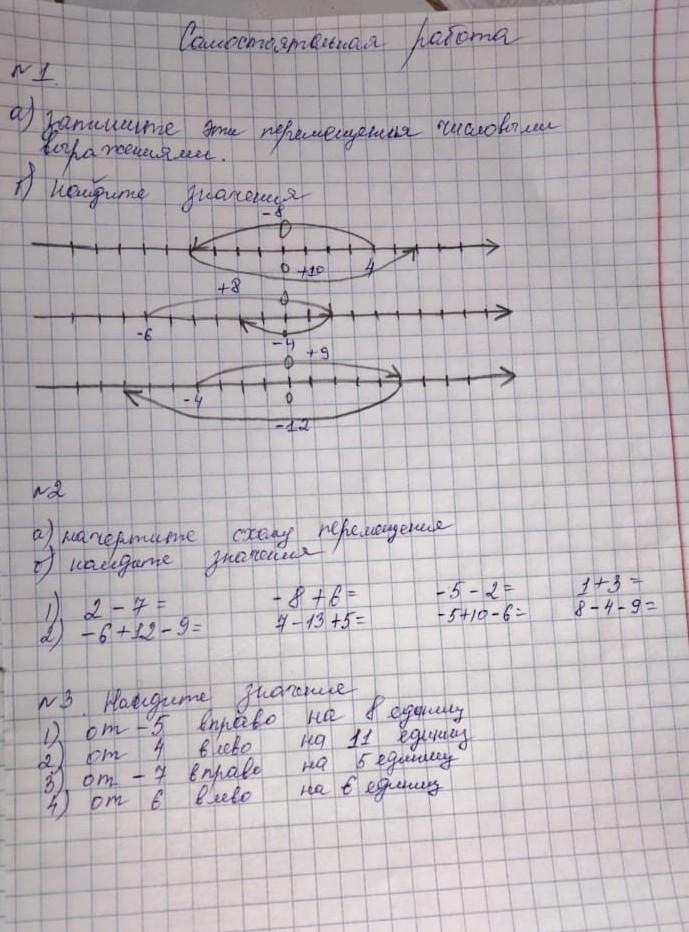 Самостоятельная работа
№1
а) запишите эти перемещения числовыми
выражениями.
б) найдите значения
-8
0
0 +10 4
+8 0
-6 -4
0 +9
-4 0
-12
№2
а) начертите схему перемещения
б) найдите значения
1) 2-7= -8+6= -5-2= 1+3=
2) -6+12-9= 7-13+5= -5+10-6= 8-4-9=
№3 Найдите значение
1) от -5 вправо на 8 единиц
2) от 4 влево на 11 единиц
3) от -7 вправо на 5 единиц
4) от 6 влево на 6 единиц